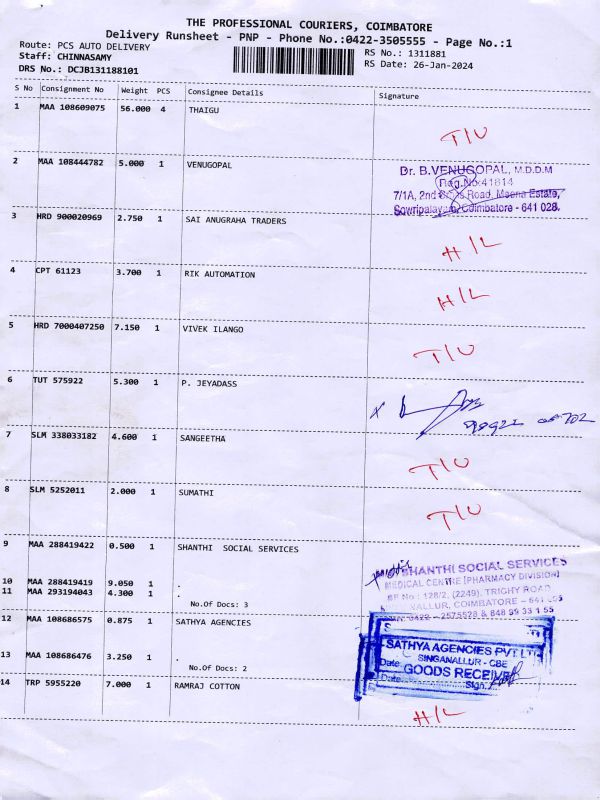 THE PROFESSIONAL COURIERS, COIMBATORE
Delivery Runsheet - PNP - Phone No.:0422-3505555 - Page No.:1
Route: PCS AUTO DELIVERY
RS No.: 1311881
Staff: CHINNASAMY
RS Date: 26-Jan-2024
DRS No.: DCJB131188101
S No Consignment No Weight PCS Consignee Details Signature
1 MAA 108609075 56.000 4 THAIGU
T/U
2 MAA 108444782 5.000 1 VENUGOPAL
Dr. B.VENUGOPAL, M.D.D.M
Reg.No:41814
7/1A, 2nd Road, Meena Estate,
Sowripalayam, Coimbatore - 641 028.
3 HRD 900020969 2.750 1 SAI ANUGRAHA TRADERS
H/L
4 CPT 61123 3.700 1 RIK AUTOMATION
H/L
5 HRD 7000407250 7.150 1 VIVEK ILANGO
T/U
6 TUT 575922 5.300 1 P. JEYADASS
7 SLM 338033182 4.600 1 SANGEETHA
T/U
8 SLM 5252011 2.000 1 SUMATHI
T/U
9 MAA 288419422 0.500 1 SHANTHI SOCIAL SERVICES
SHANTHI SOCIAL SERVICES
MEDICAL CENTRE [PHARMACY DIVISION]
No : 128/2, (2249), TRICHY ROAD
COIMBATORE – 641 005
0422 - 2575528 & 848 89 33 1 55
10 MAA 288419419 9.050 1 .
11 MAA 293194043 4.300 1 .
No.Of Docs: 3
12 MAA 108686575 0.875 1 SATHYA AGENCIES
SATHYA AGENCIES PVT LTD
SINGANALLUR - CBE
GOODS RECEIVED
Date:
Date: Sign.
13 MAA 108686476 3.250 1 .
No.Of Docs: 2
14 TRP 5955220 7.000 1 RAMRAJ COTTON
H/L